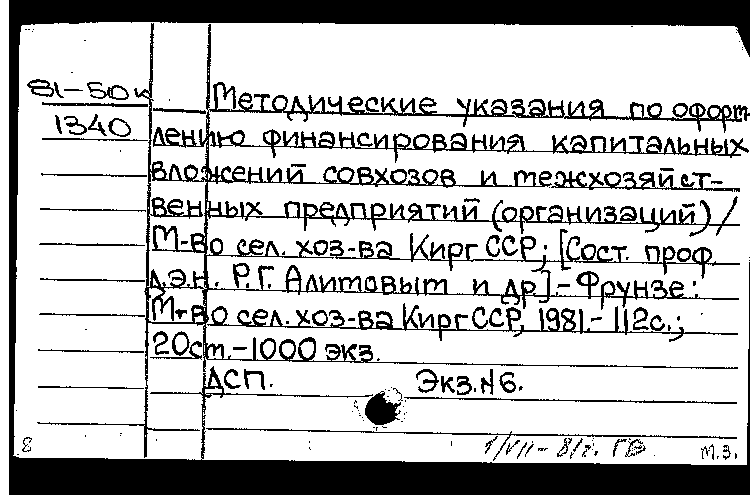 81-50к
1340
Методические указания по оформ-
лению финансирования капитальных
вложений совхозов и межхозяйст-
венных предприятий (организаций) /
М-во сел. хоз-ва Кирг ССР; [Сост. проф.
д.э.н. Р.Г. Алимовым и др].- Фрунзе:
М-во сел. хоз-ва Кирг ССР, 1981.- 112с.;
20см.-1000 экз.
ДСП. Экз.№6.
8 1/VII-81г. М.З.